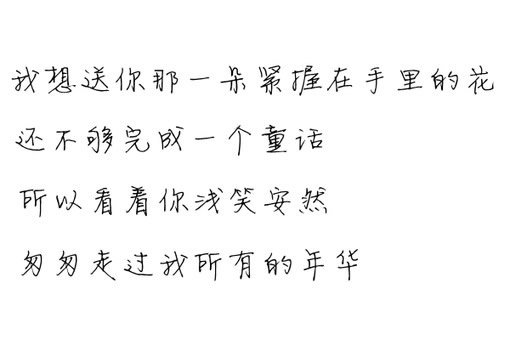 我想送你那一朵紧握在手里的花
还不够完成一个童话
所以看着你浅笑安然
匆匆走过我所有的年华